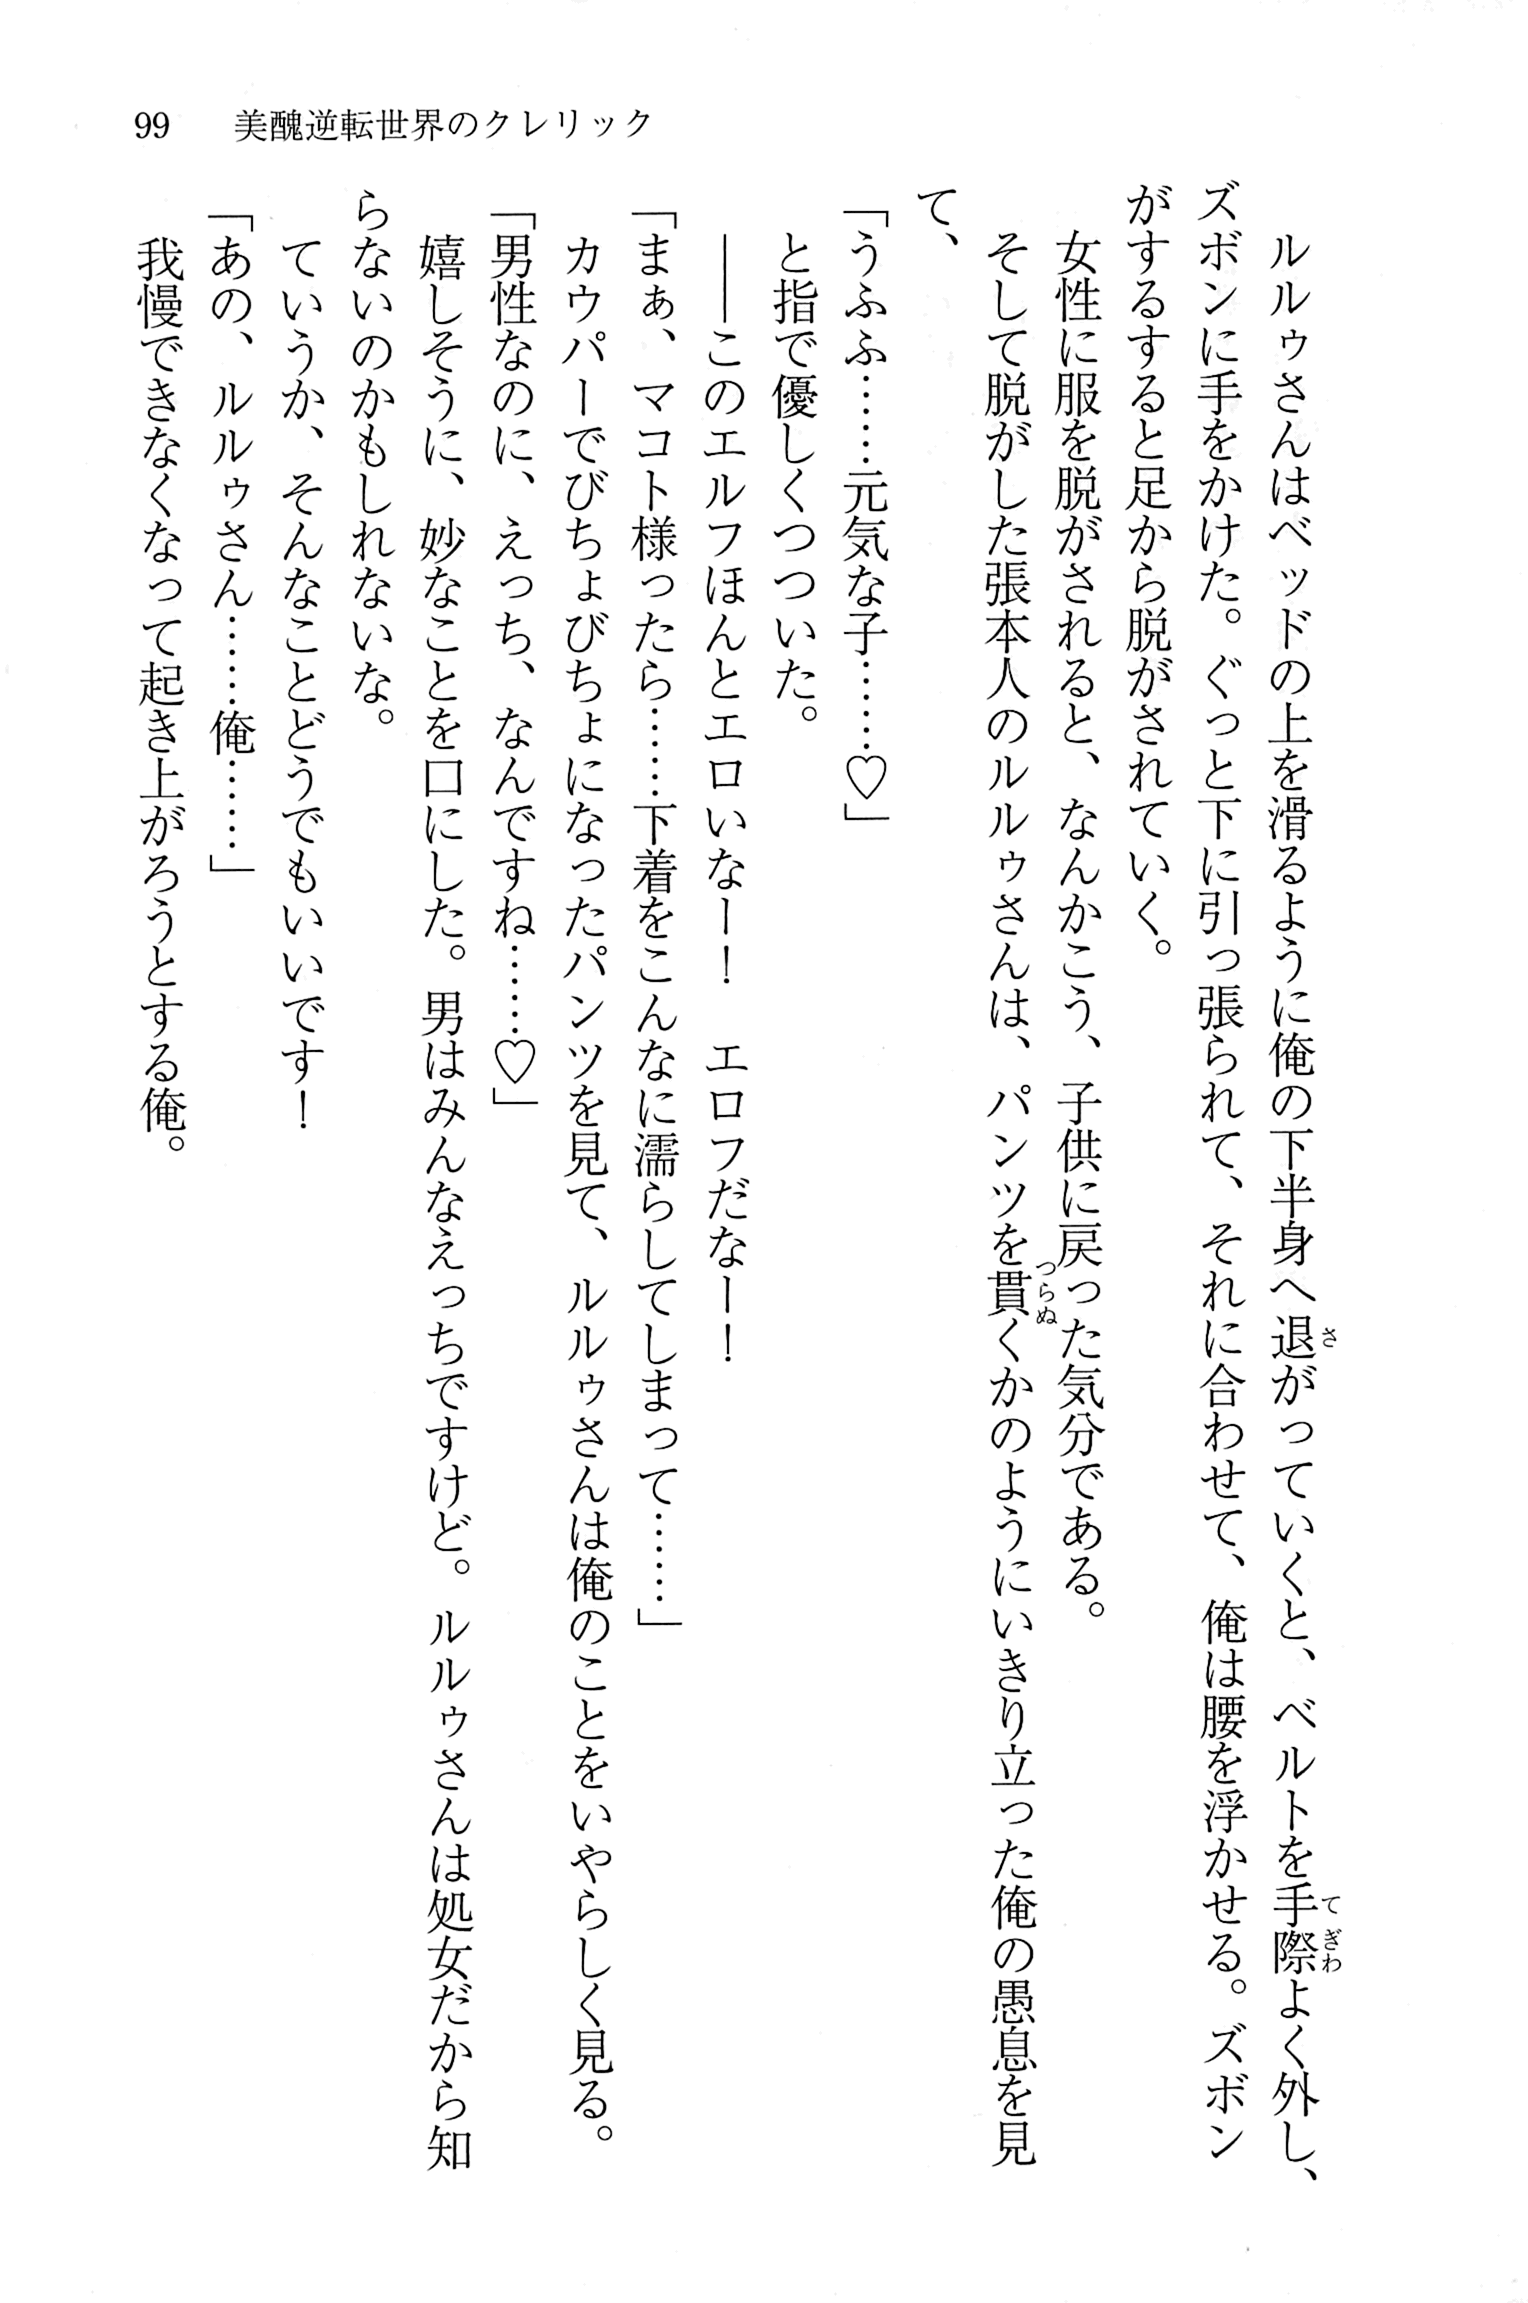 99 美醜逆転世界のクレリック
ルルゥさんはベッドの上を滑るように俺の下半身へ退がっていくと、ベルトを手際よく外し、
ズボンに手をかけた。ぐっと下に引っ張られて、それに合わせて、俺は腰を浮かせる。ズボン
がするすると足から脱がされていく。
女性に服を脱がされると、なんかこう、子供に戻った気分である。
そして脱がした張本人のルルゥさんは、パンツを貫くかのようにいきり立った俺の愚息を見
て、
「うふふ……元気な子……♡」
と指で優しくつついた。
――このエルフほんとエロいなー！　エロフだなー！
「まぁ、マコト様ったら……下着をこんなに濡らしてしまって……」
カウパーでびちょびちょになったパンツを見て、ルルゥさんは俺のことをいやらしく見る。
「男性なのに、えっち、なんですね……♡」
嬉しそうに、妙なことを口にした。男はみんなえっちですけど。ルルゥさんは処女だから知
らないのかもしれないな。
ていうか、そんなことどうでもいいです！
「あの、ルルゥさん……俺……」
我慢できなくなって起き上がろうとする俺。